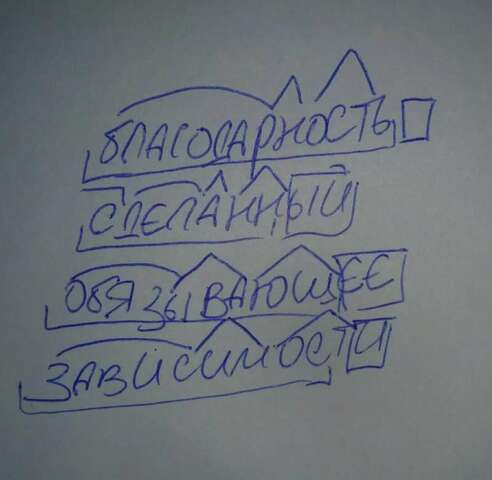 благодарность
сделанный
обязывающее
зависимости